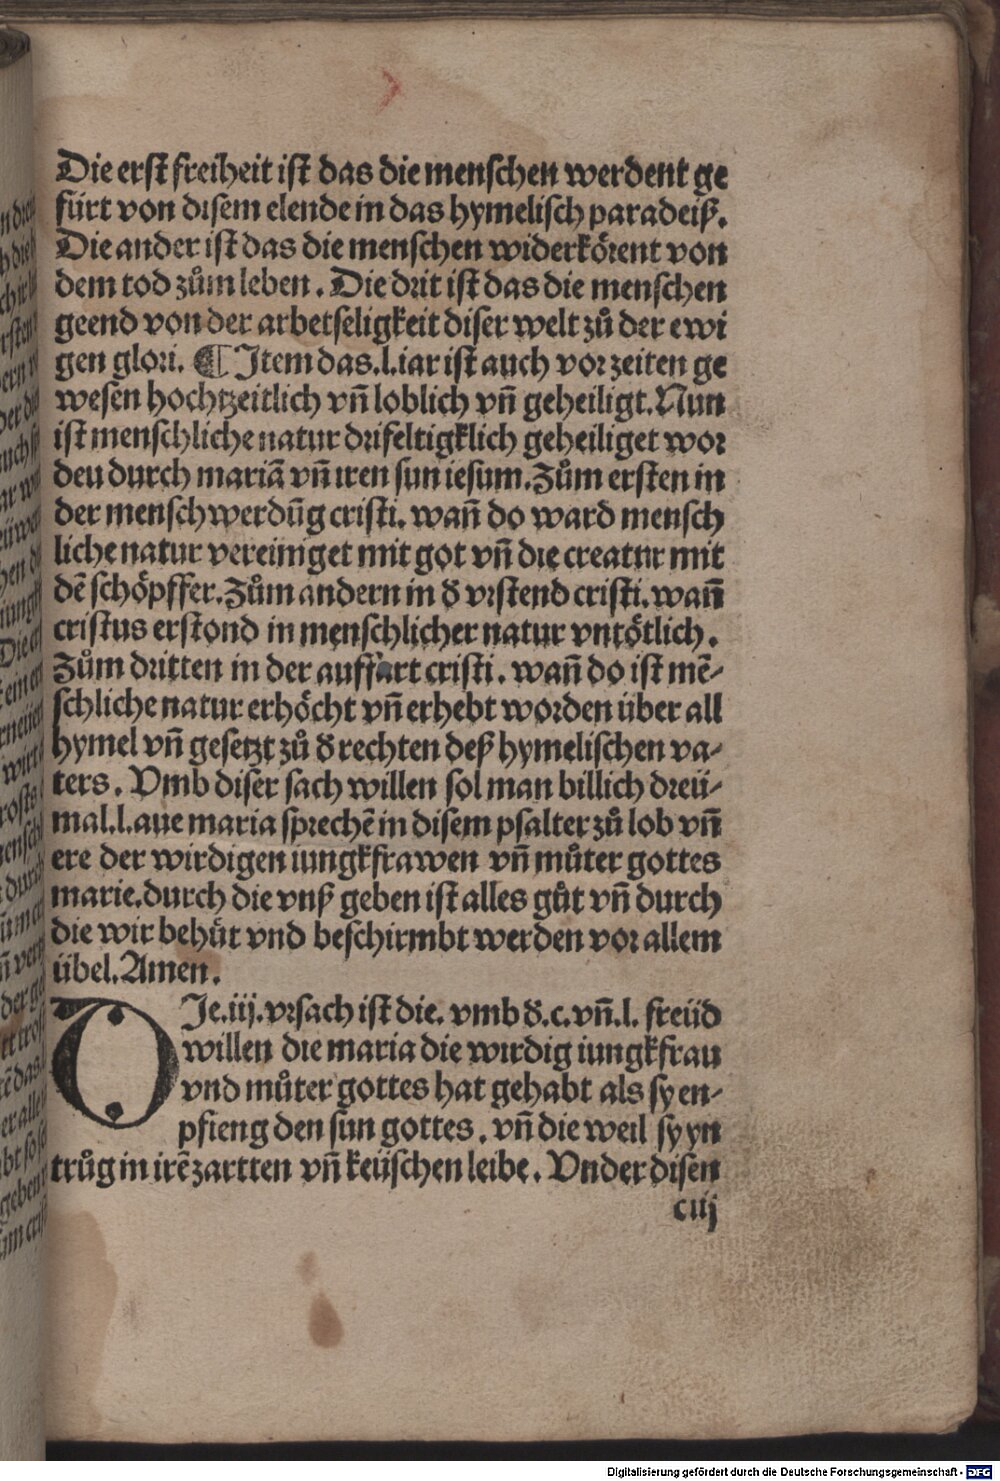 Die erst freiheit ist das die menschen werdent ge
fürt von disem elende in das hymelisch paradeiß.
Die ander ist das die menschen widerkörent von
dem tod zům leben. Die drit ist das die menschen
geend von der arbetseligkeit diser welt zů der ewi
gen glori. ¶ Item das .l. iar ist auch vor zeiten ge
wesen hochtzeitlich vñ loblich vñ geheiligt. Nun
ist menschliche natur drifeltigklich geheiliget wor
deu durch mariā vñ iren sun iesum. Zům ersten in
der menschwerdūg cristi. wañ do ward mensch
liche natur vereiniget mit got vñ die creatur mit
dē schöpffer. Zům andern in d̄ vrstend cristi. wañ
cristus erstond in menschlicher natur vntötlich.
Zům dritten in der auffart cristi. wañ do ist mē-
schliche natur erhöcht vñ erhebt worden über all
hymel vñ gesetzt zů d̄ rechten deß hymelischen va-
ters. Vmb diser sach willen sol man billich dreü-
mal .l. aue maria sprechē in disem psalter zů lob vñ
ere der wirdigen iungkfrawen vñ můter gottes
marie. durch die vnß geben ist alles gůt vñ durch
die wir behüt vnd beschirmbt werden vor allem
übel. Amen.
DIe .iij. vrsach ist die. vmb d̄ .c. vñ .l. freüd
willen die maria die wirdig iungkfrau
vnd můter gottes hat gehabt als sy en-
pfieng den sun gottes. vñ die weil sy yn
trůg in irē zartten vñ keüschen leibe. Vnder disen
ciij
Digitalisierung gefördert durch die Deutsche Forschungsgemeinschaft - DFG